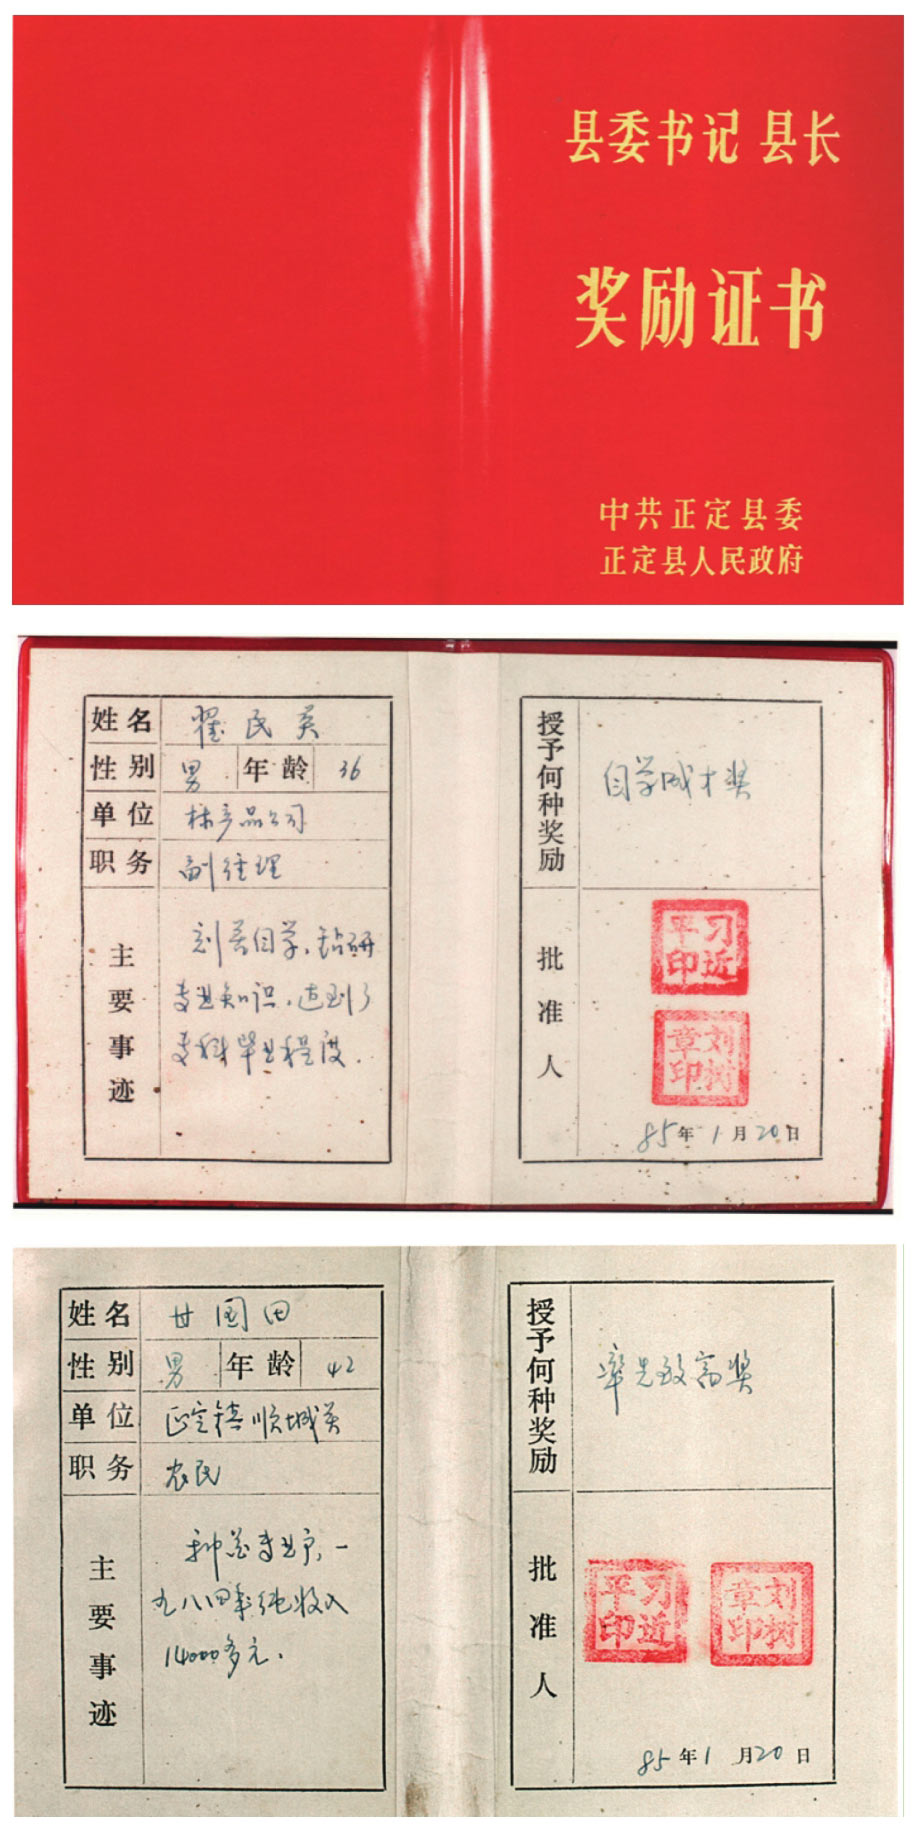 县委书记 县长
奖励证书
中共正定县委
正定县人民政府
姓名 翟民英
性别 男 年龄 36
单位 林产品公司
职务 副经理
主要事迹
刻苦自学，钻研
专业知识，达到了
专科毕业程度．
授予何种奖励
自学成才奖
批准人
习近平印
刘树章印
85年1月20日
姓名 甘国田
性别 男 年龄 42
单位 正定镇顺城关
职务 农民
主要事迹
种花专业户，一
九八四年纯收入
14000多元．
授予何种奖励
率先致富奖
批准人
习近平印 刘树章印
85年1月20日